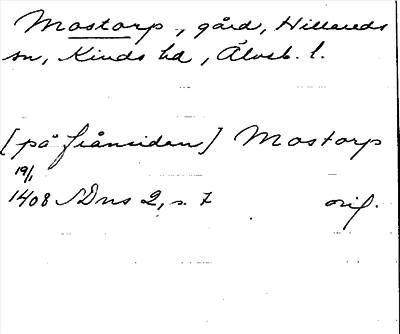 Mostorp, gård, Hillareds
sn, Kinds hd, Älvsb. l.
[på frånsidan] Mostorp
19/1
1408 SDns 2, s. 7 orig.